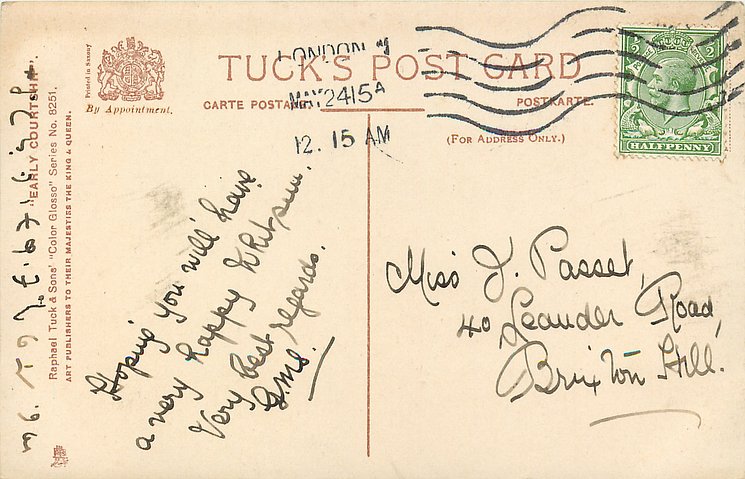 LONDON
MAY 24 15 A
12. 15 AM
TUCK'S POST CARD
CARTE POSTALE
POSTKARTE.
(FOR ADDRESS ONLY.)
Printed in Saxony
By Appointment.
½ ½
HALFPENNY
"EARLY COURTSHIP"
Raphael Tuck & Sons' "Color Glosso" Series No. 8251.
ART PUBLISHERS TO THEIR MAJESTIES THE KING & QUEEN.
Hoping you will have
a very happy Whitsun.
Very best regards.
Miss J. Passet,
40 Leander Road,
Brixton Hill.